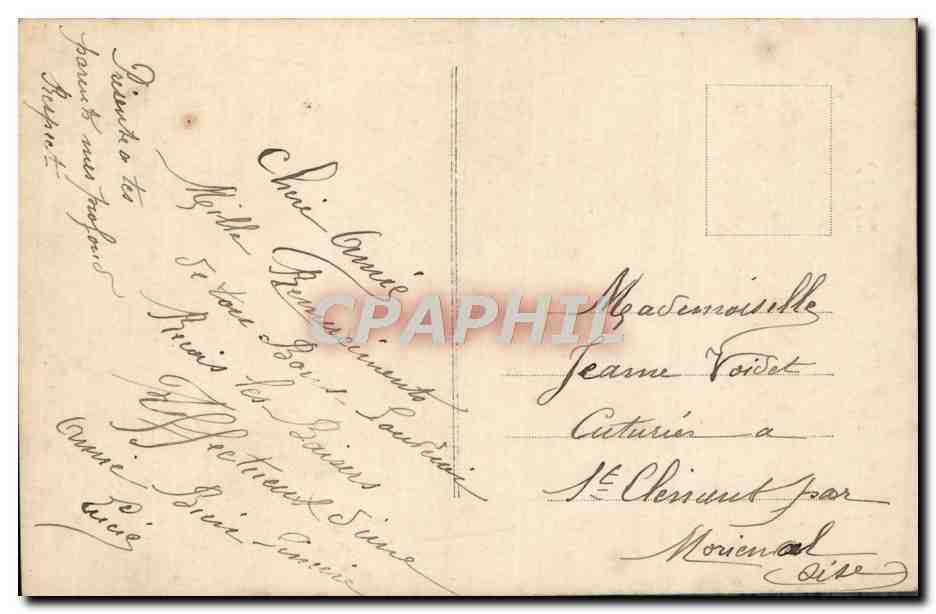 Chère Amie
Mille Remerciments
de ton Bons Souvenir
Recois les Baisers
Affectueux d'une
Amie Bien Sincère
Lucie
Présente a tes
parents mes profond
Respect
Mademoiselle
Jeanne Voidet
Cuturiés a
St Clément par
Morienval
Oise
CPAPHIL